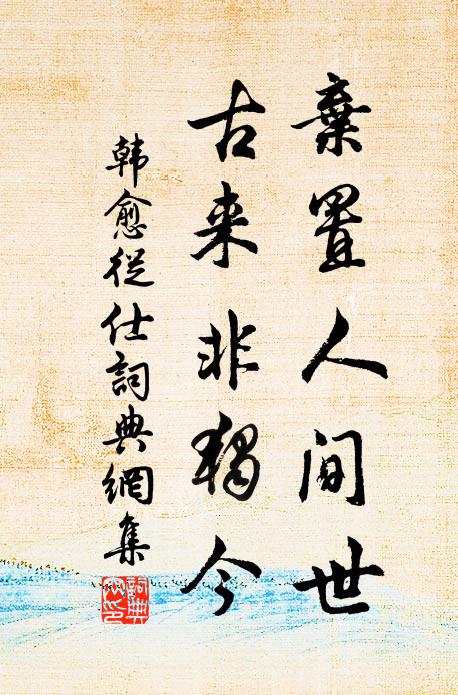 棄置人间世
古来非獨今
韩愈從仕詞典網集